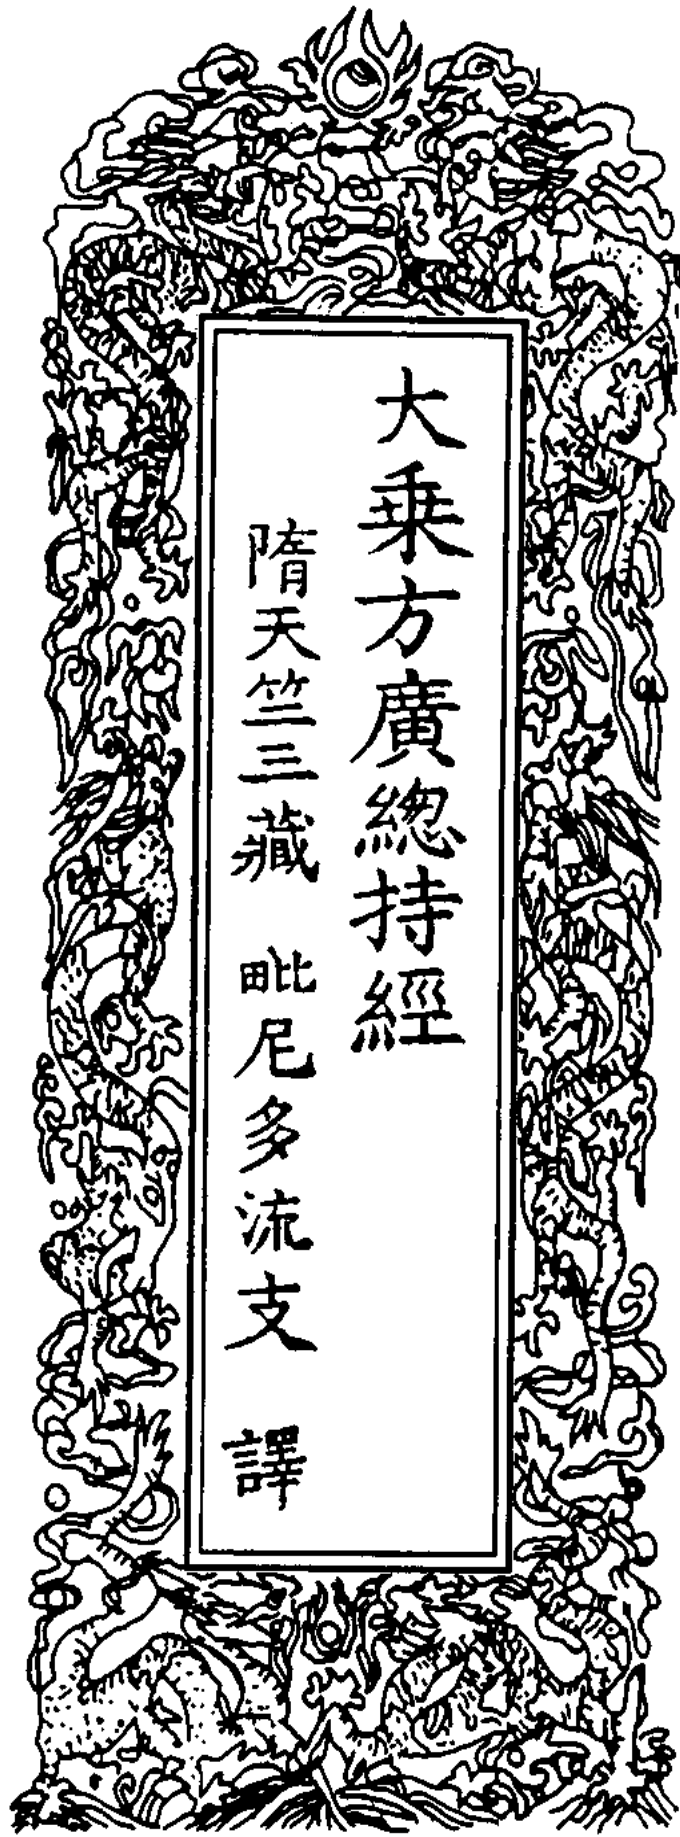 大乗方廣緫持經
隋天竺三藏　毗尼多流支　譯